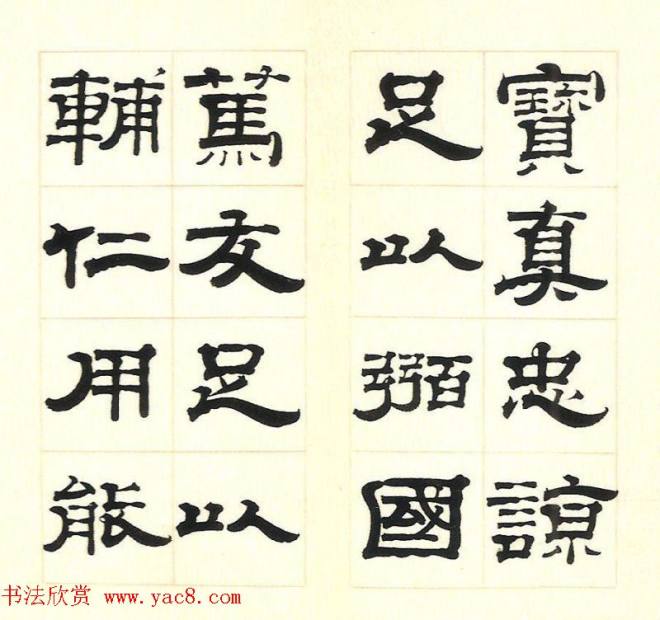 寶真忠諒
足以弼國
篤友足以
輔仁用能
书法欣赏 www.yac8.com